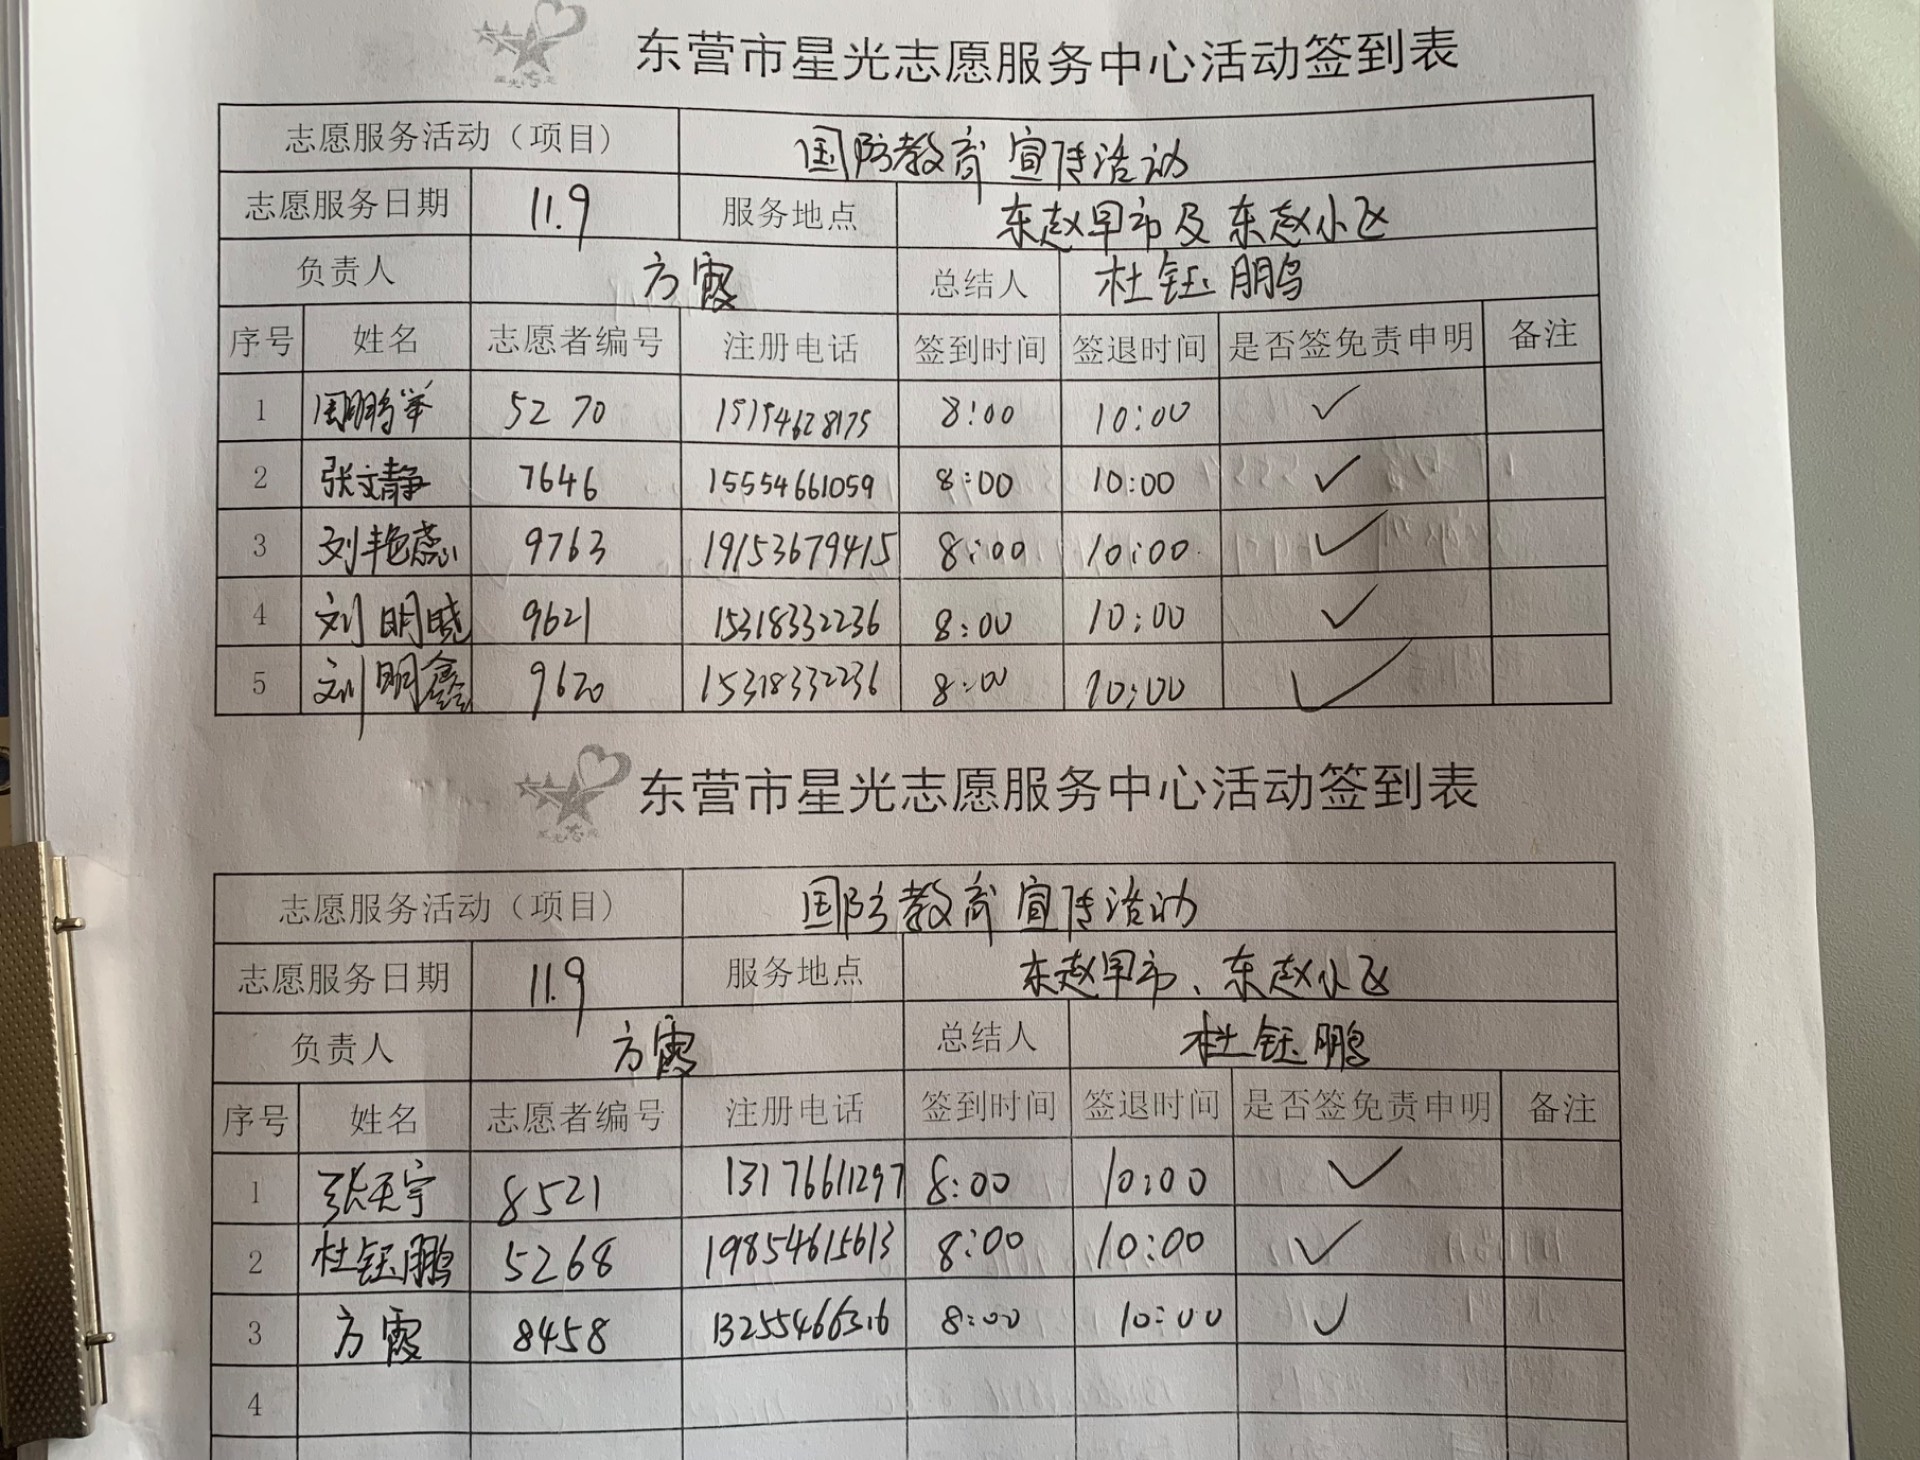 东营市星光志愿服务中心活动签到表
志愿服务活动（项目） 国防教育宣传活动
志愿服务日期 11.9 服务地点 东赵早市及东赵小区
负责人 方霞 总结人 杜钰鹏
序号 姓名 志愿者编号 注册电话 签到时间 签退时间 是否签免责申明 备注
1 周鹏举 5270 15154628175 8:00 10:00 ✓
2 张文静 7646 15554661059 8:00 10:00 ✓
3 刘艳蕊 9763 19153679415 8:00 10:00 ✓
4 刘明晓 9621 15318332236 8:00 10:00 ✓
5 刘明鑫 9620 15318332236 8:00 10:00 ✓
东营市星光志愿服务中心活动签到表
志愿服务活动（项目） 国防教育宣传活动
志愿服务日期 11.9 服务地点 东赵早市、东赵小区
负责人 方霞 总结人 杜钰鹏
序号 姓名 志愿者编号 注册电话 签到时间 签退时间 是否签免责申明 备注
1 张天宇 8521 13176611297 8:00 10:00 ✓
2 杜钰鹏 5268 19854615613 8:00 10:00 ✓
3 方霞 8458 13255466316 8:00 10:00 ✓
4